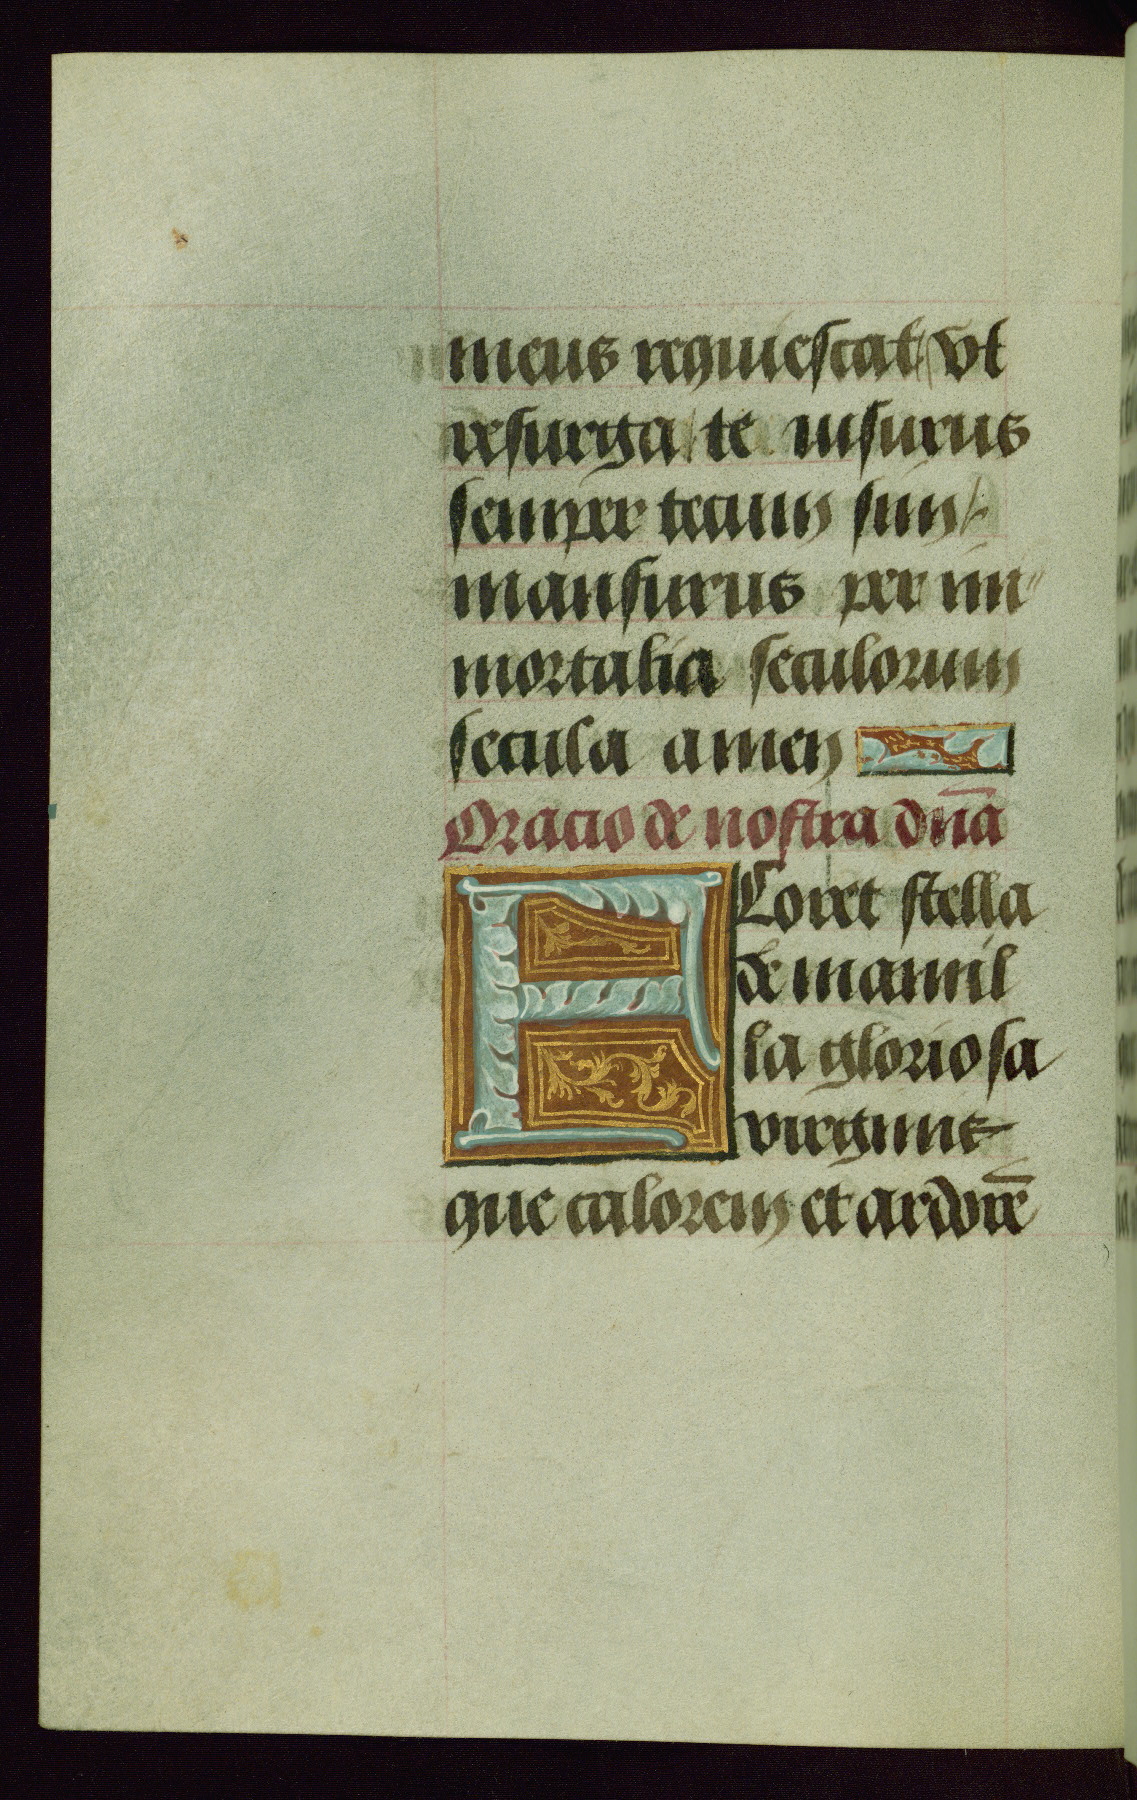 meus requiescat / vt
resurga / te uisurus
semper tecum sim /
mansurus per im
mortalia seculorum
secula amen
Oracio de nostra dn̄a
FLoret stella
de mamil
la gloriosa
virginis
que calorem et ardorē